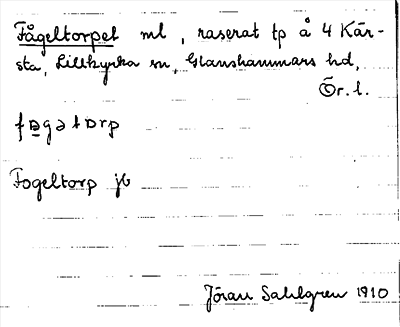 Fågeltorpet ml, raserat tp å 4 Kär-
sta, Lillkyrka sn, Glanshammars hd,
Ör. l.
fɒgəltɒrp
Fogeltorp jb
Jöran Sahlgren 1910